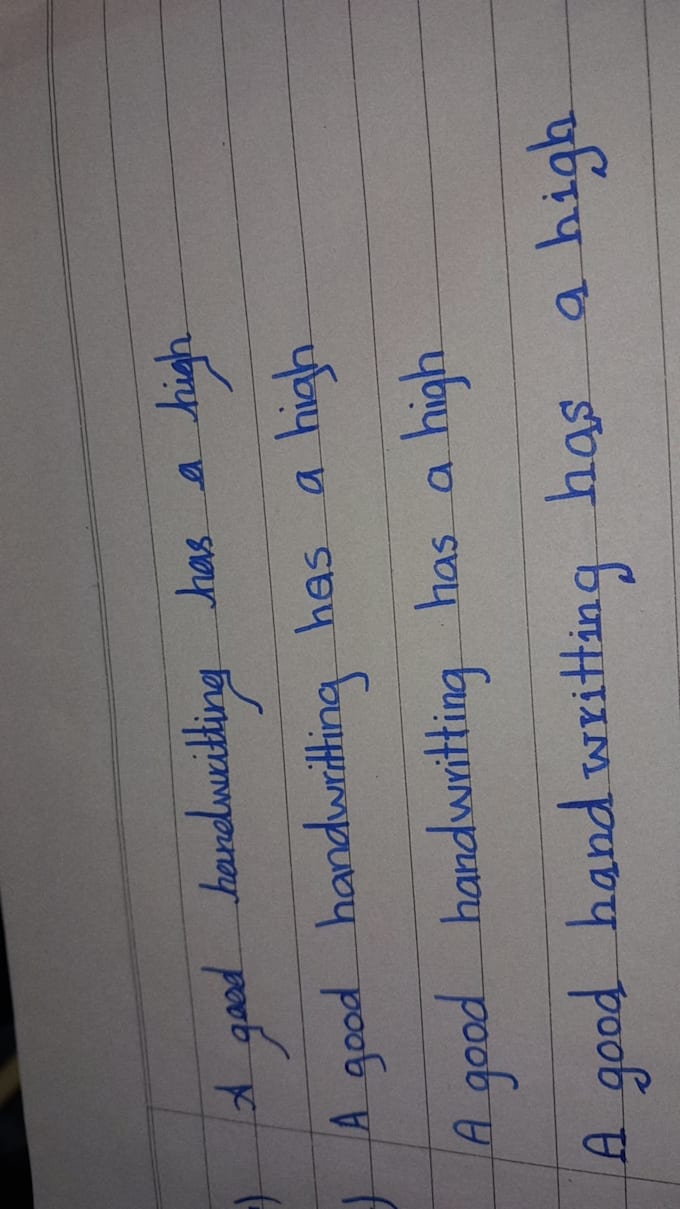 A good handwritting has a high
A good handwritting has a high
A good handwritting has a high
A good handwritting has a high